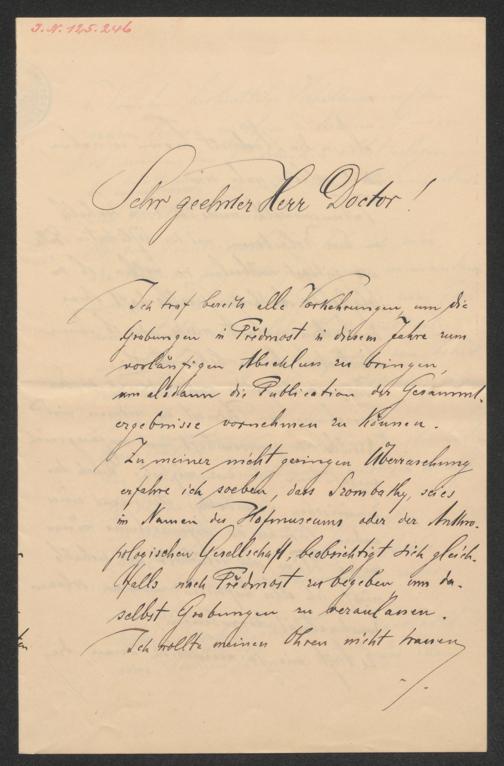 J. N. 125.246
Sehr geehrter Herr Doctor!
Ich traf bereits alle Vorkehrungen, um die
Grabungen in Předmost in diesem Jahre zum
vorläufigen Abschluss zu bringen,
um alsdann die Publication der Gesammt-
ergebnisse vornehmen zu können.
Zu meiner nicht geringen Überraschung
erfahre ich soeben, dass Szombathy, sei es
im Namen des Hofmuseums oder der Anthro-
pologischen Gesellschaft, beabsichtigt sich gleich-
falls nach Předmost zu begeben um da-
selbst Grabungen zu veranlassen.
Ich wollte meinen Ohren nicht trauen
./.